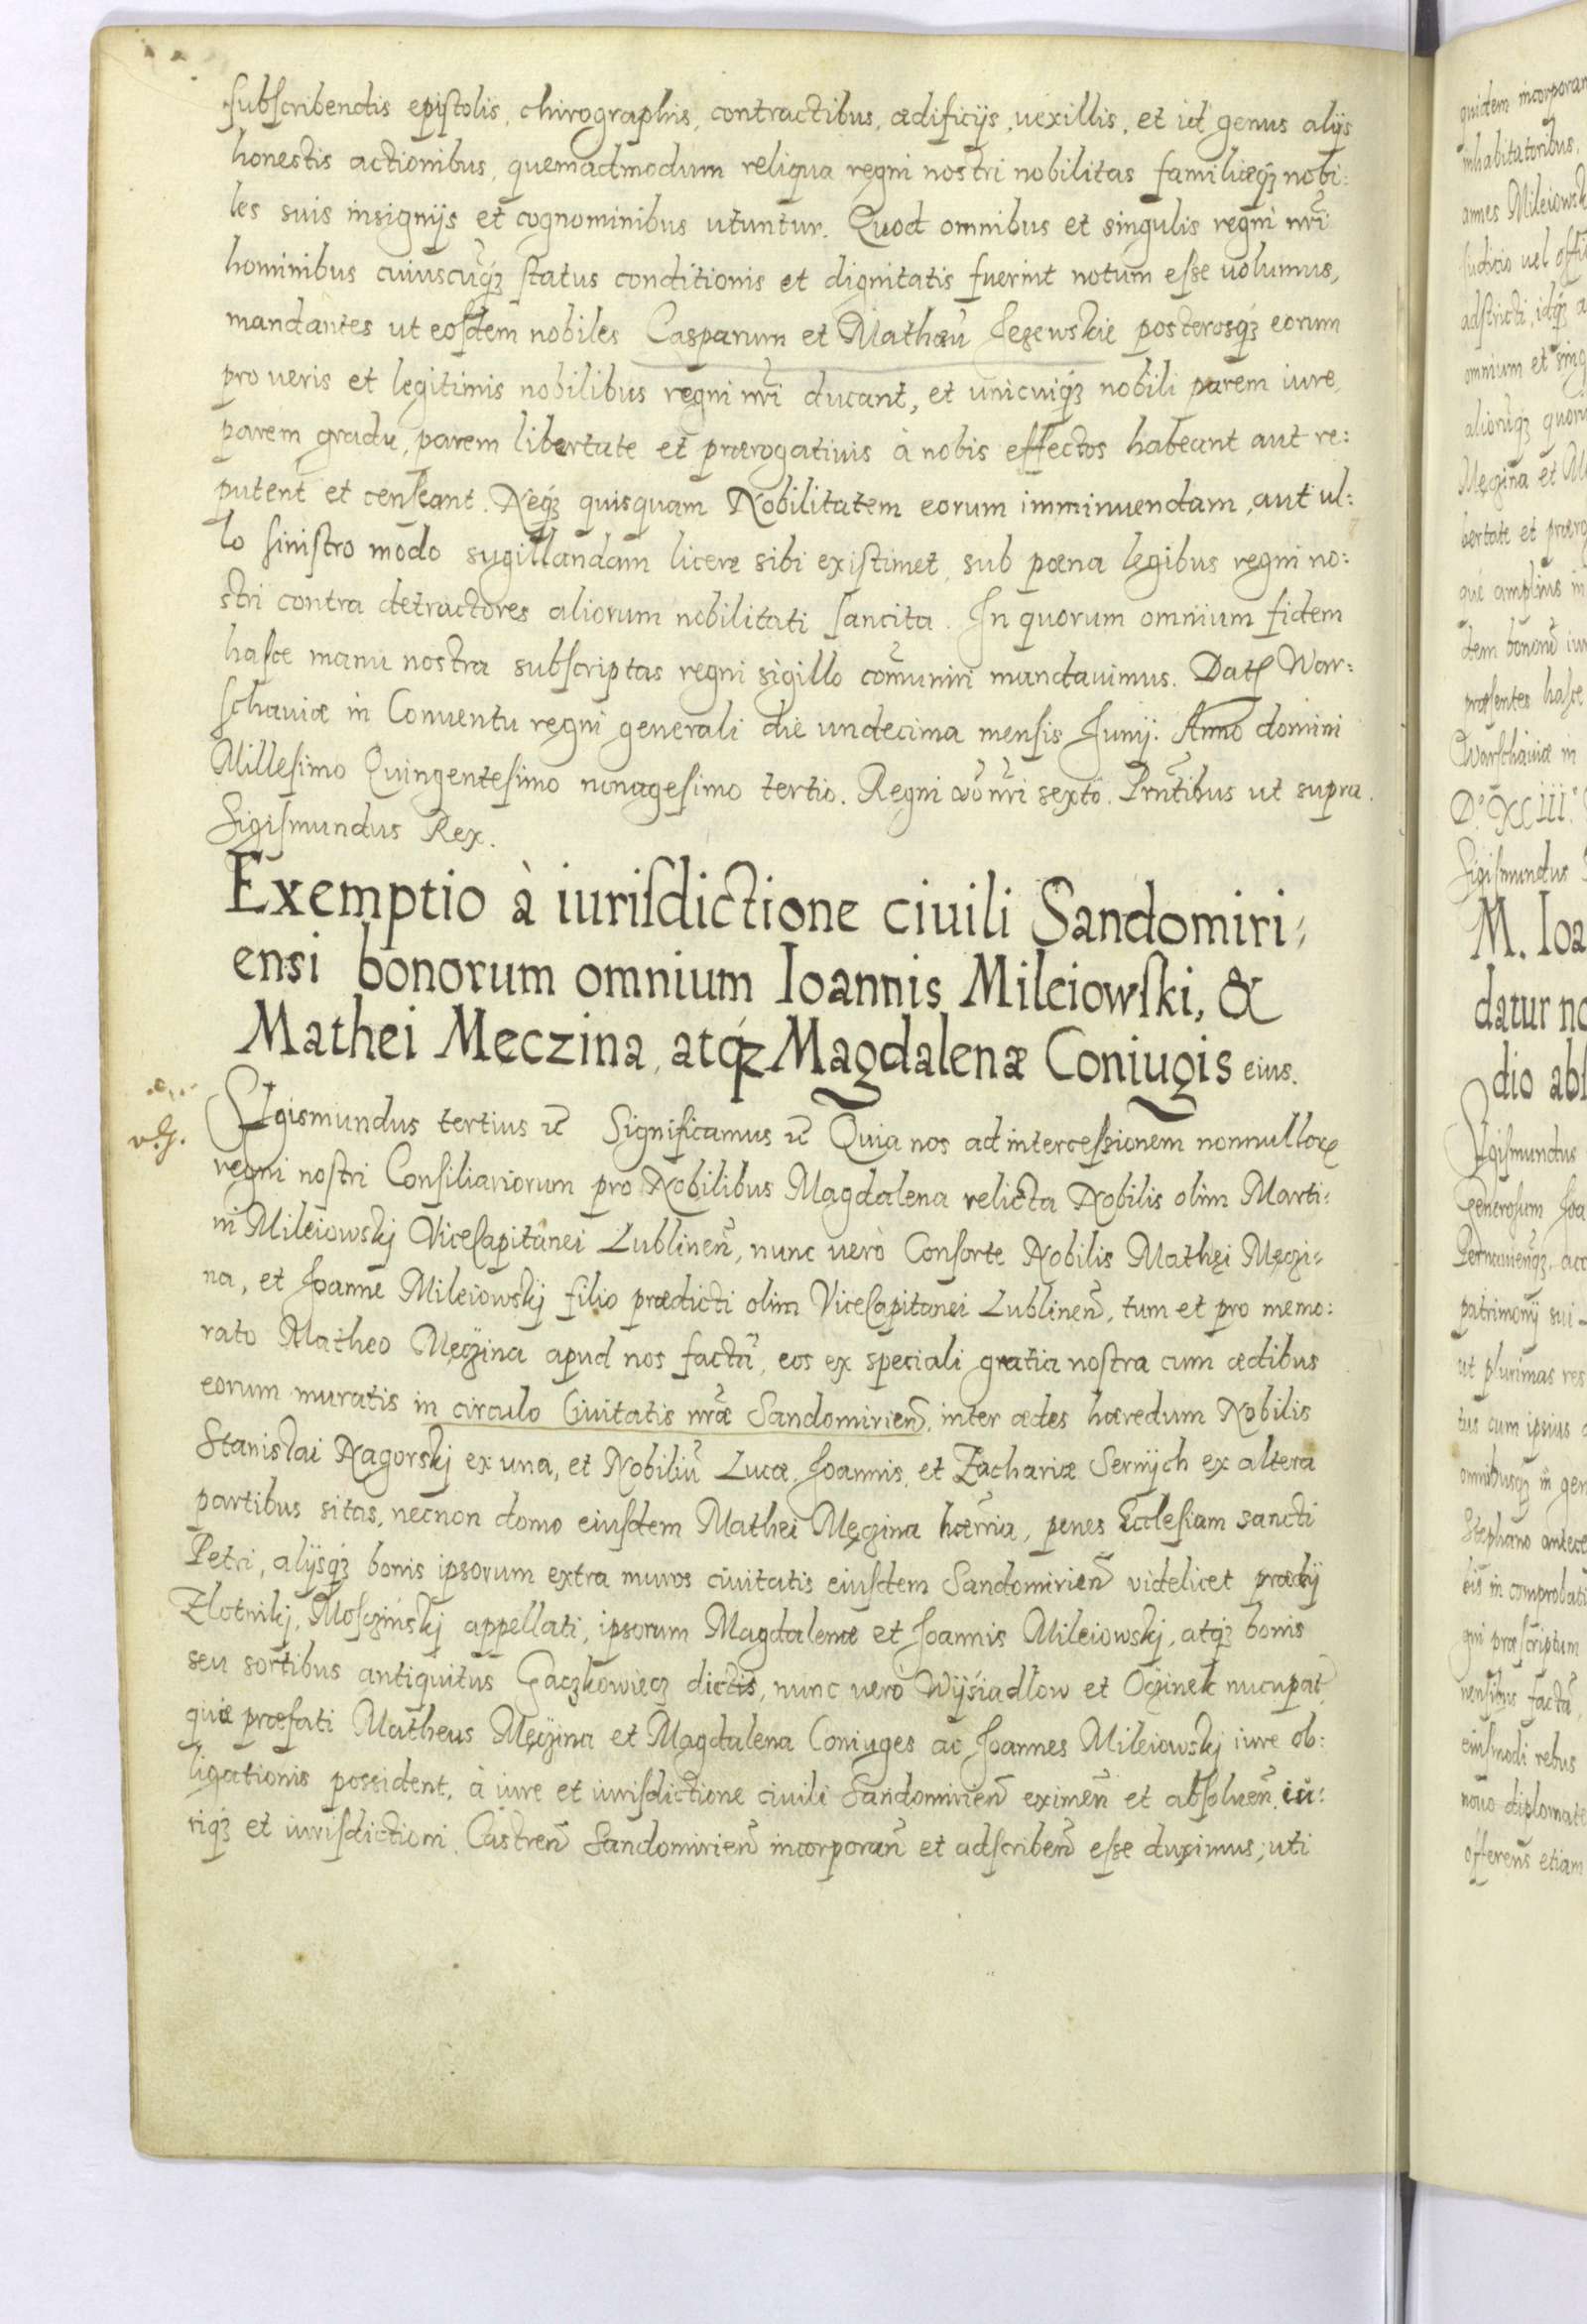 subscribendis epistolis, chirographis, contractibus, ædificijs, uexillis, et id genus alijs
honestis actionibus, quemadmodum reliqua regni nostri nobilitas familiæq́ʒ nobi:
les suis insignijs et cognominibus utuntur. Quod omnibus et singulis regni nr̃i
hominibus cuiuscũq́ʒ status conditionis et dignitatis fuerint notum esse uolumus,
mandantes ut eosdem nobiles Casparum et Mathæũ Jezewskie posterosq́ʒ eorum
pro ueris et legitimis nobilibus regni nr̃i ducant, et unicuiq́ʒ nobili parem iure,
parem gradu, parem libertate et prærogatiuis à nobis effectos habeant aut re:
putent et censeant. Neq́ʒ quisquam Nobilitatem eorum imminuendam, aut ul:
lo sinistro modo sugillandam licere sibi existimet, sub pœna legibus regni no:
stri contra detractores aliorum nobilitati sancita. In quorum omnium fidem
hasce manu nostra subscriptas regni sigillo com̃uniri mandauimus. Datꝭ War:
schauiæ in Conuentu regni generali die undecima mensis Junij. Anno domini
Millesimo Quingentesimo nonagesimo tertio. Regni uõ nr̃i sexto. Prñtibus ut supra.
Sigismundus Rex.
Exemptio à iurisdictione ciuili Sandomiri:
ensi bonorum omnium Ioannis Mileiowski, &
Mathei Meczina, atq́ʒ Magdalenæ Coniugis eius.
Sigismundus tertius ꝛc̃ Significamus ꝛc̃ Quia nos ad intercessionem nonnulloꝝ
regni nostri Consiliariorum pro Nobilibus Magdalena relicta Nobilis olim Marti:
ni Mileiowskj ViceCapitanei Lublineñ, nunc uerò Consorte Nobilis Mathęi Męczi:
na, et Joanne Mileiowskj filio prædicti olim ViceCapitanei Lublineñ, tum et pro memo:
rato Matheo Męczina apud nos factã, eos ex speciali gratia nostra cum ædibus
eorum muratis in circulo Ciuitatis nr̃æ Sandomirieñ, inter ædes hæredum Nobilis
Stanislai Nagorskj ex una, et Nobiliũ Lucæ, Joannis, et Zachariæ Sernych ex altera
partibus sitas, necnon domo eiusdem Mathei Męczina hær̃ria, penes Ecclesiam sancti
Petri, alijsq́ʒ bonis ipsorum extra muros ciuitatis eiusdem Sandomirieñ videlicet prædij
Zlotnikj, Mosczińskj appellati, ipsorum Magdalenæ et Joannis Mileiowskj, atq́ʒ bonis
seu sortibus antiquitus Gaczkowiecz dictis, nunc uerò Wyśiadlow et Oczinek nucupat̃
quæ præfati Matheus Męczina et Magdalena Coniuges ac Joannes Mileiowskj iure ob:
ligationis possident, à iure et iurisdictione ciuili Sandomirieñ eximeñ et absolueñ, iu:
riq́ʒ et iurisdictioni Castreñ Sandomirieñ incorporañ et adscribeñ esse duximus, uti
quidem incorporam
inhabitatoribus,
annes Mileiowsk
omnium et sing
Męczina et M
bertate et prærog
præsentes hasce
Warschauiæ in
Sigismundus
M. Ioa
datur no
dio abs
Sigismundus
Generosum Joa
patrimonij sui
ut plurimas res
tus cum ipsius
omnibusq́ʒ in gen
Stephano antece
eis in comprobati
gni præscriptum
nensibus factã,
eiusmodi rebus
nouo diplomate
offerens etiam